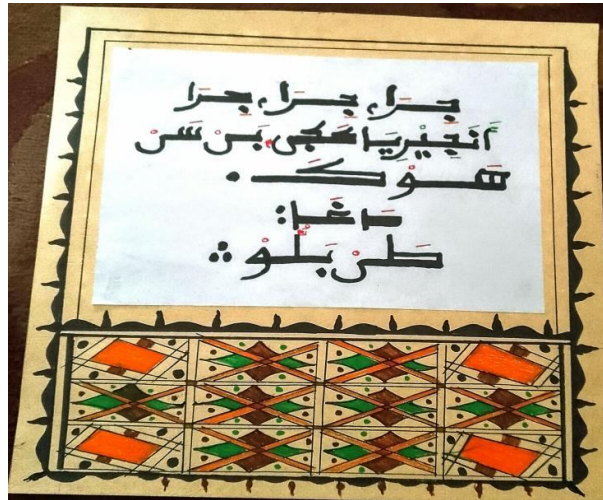 جِرَا، جِرَا، جِرَا
أَنَجِيْرِيَا بَنْ سَنْ
هَوْكَ .
دَاغَا:
طَنْ بَلُّوْ ∴